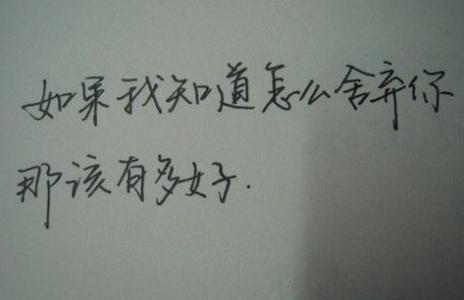 如果我知道怎么舍弃你
那该有多好.